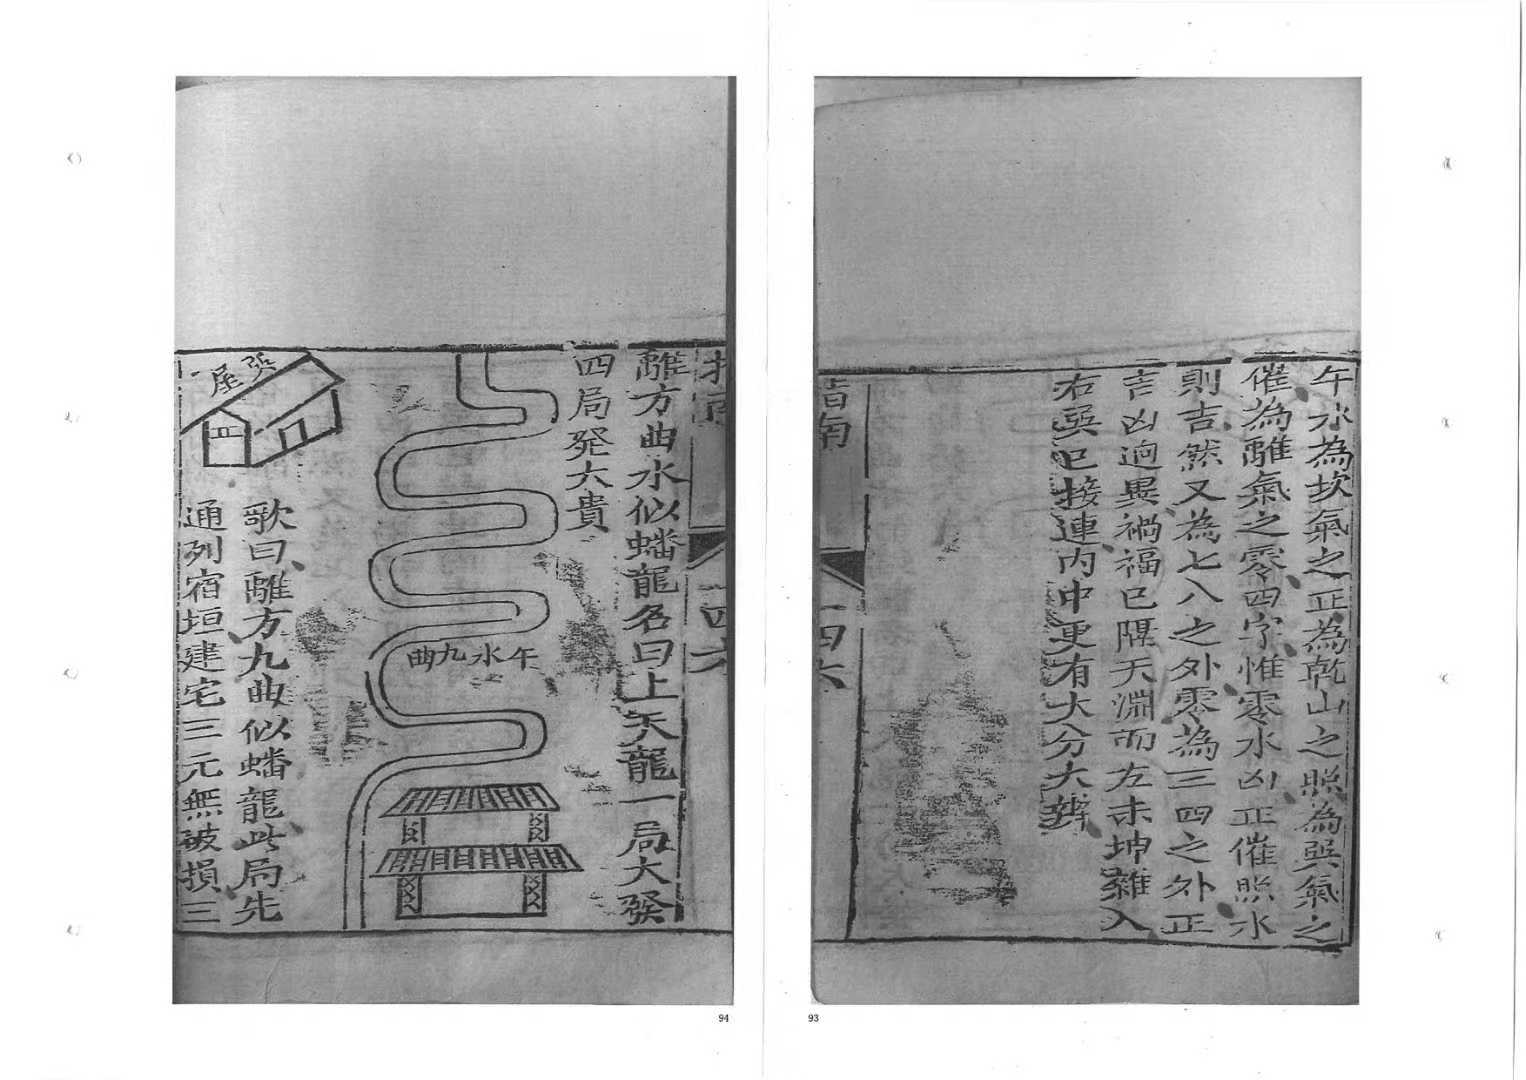 午水為坎氣之正為乾山之照為巽氣之
催為離氣之零四字惟零水凶正催照水
則吉然又為七八之外零為三四之外正
吉凶逈異禍福已隔天淵而左未坤雜入
右巽巳接連內中更有大分大辨
指南
四六
93
指南
四六
離方曲水似蟠龍名曰上天龍一局大發
四局發大貴
午水九曲
屋
歌曰離方九曲似蟠龍此局先
通列宿垣建宅三元無破損三
94